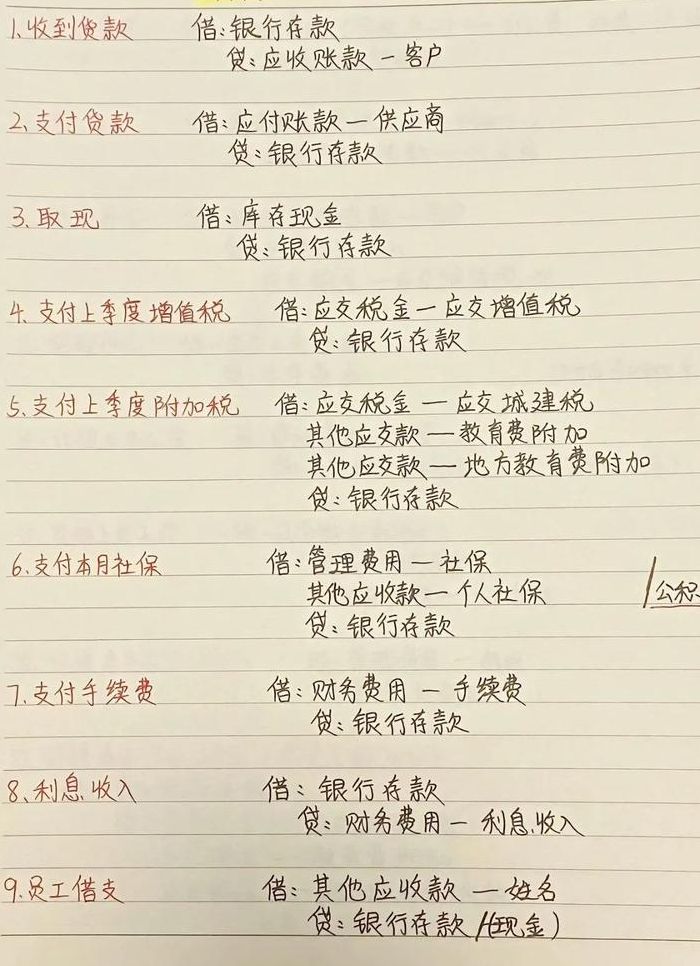 1.收到货款 借:银行存款
贷:应收账款—客户
2.支付货款 借:应付账款—供应商
贷:银行存款
3.取现 借:库存现金
贷:银行存款
4.支付上季度增值税 借:应交税金—应交增值税
贷:银行存款
5.支付上季度附加税 借:应交税金—应交城建税
其他应交款—教育费附加
其他应交款—地方教育费附加
贷:银行存款
6.支付本月社保 借:管理费用—社保
其他应收款—个人社保 /公积
贷:银行存款
7.支付手续费 借:财务费用—手续费
贷:银行存款
8.利息收入 借:银行存款
贷:财务费用—利息收入
9.员工借支 借:其他应收款—姓名
贷:银行存款/(现金)